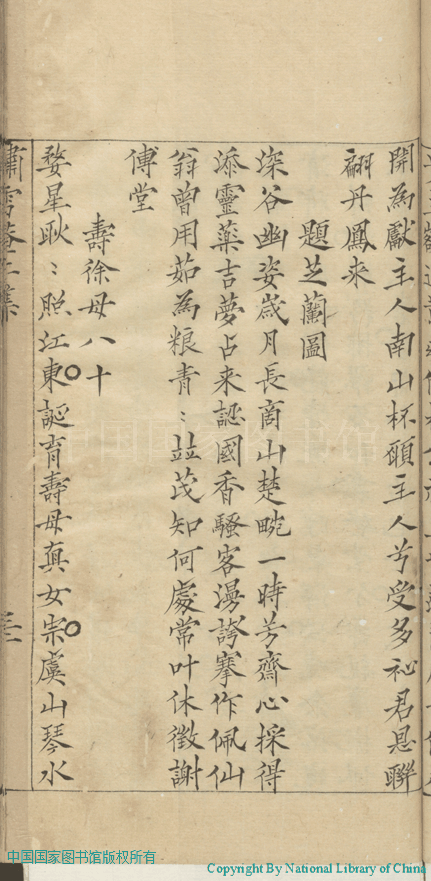 開為獻主人南山杯願主人兮受多祉君恩聯
翩丹鳳来
題芝蘭圖
深谷幽姿歲月長商山楚畹一時芳齋心採得
添靈藥吉夢占来誕國香騷客漫誇搴作佩仙
翁曾用茹為粮青〻並茂知何處常叶休徵謝
傅堂
壽徐母八十
婺星耿〻照江東誕育壽母真女宗虞山琴水
中国国家图书馆
中国国家图书馆版权所有
Copyright By National Library of China